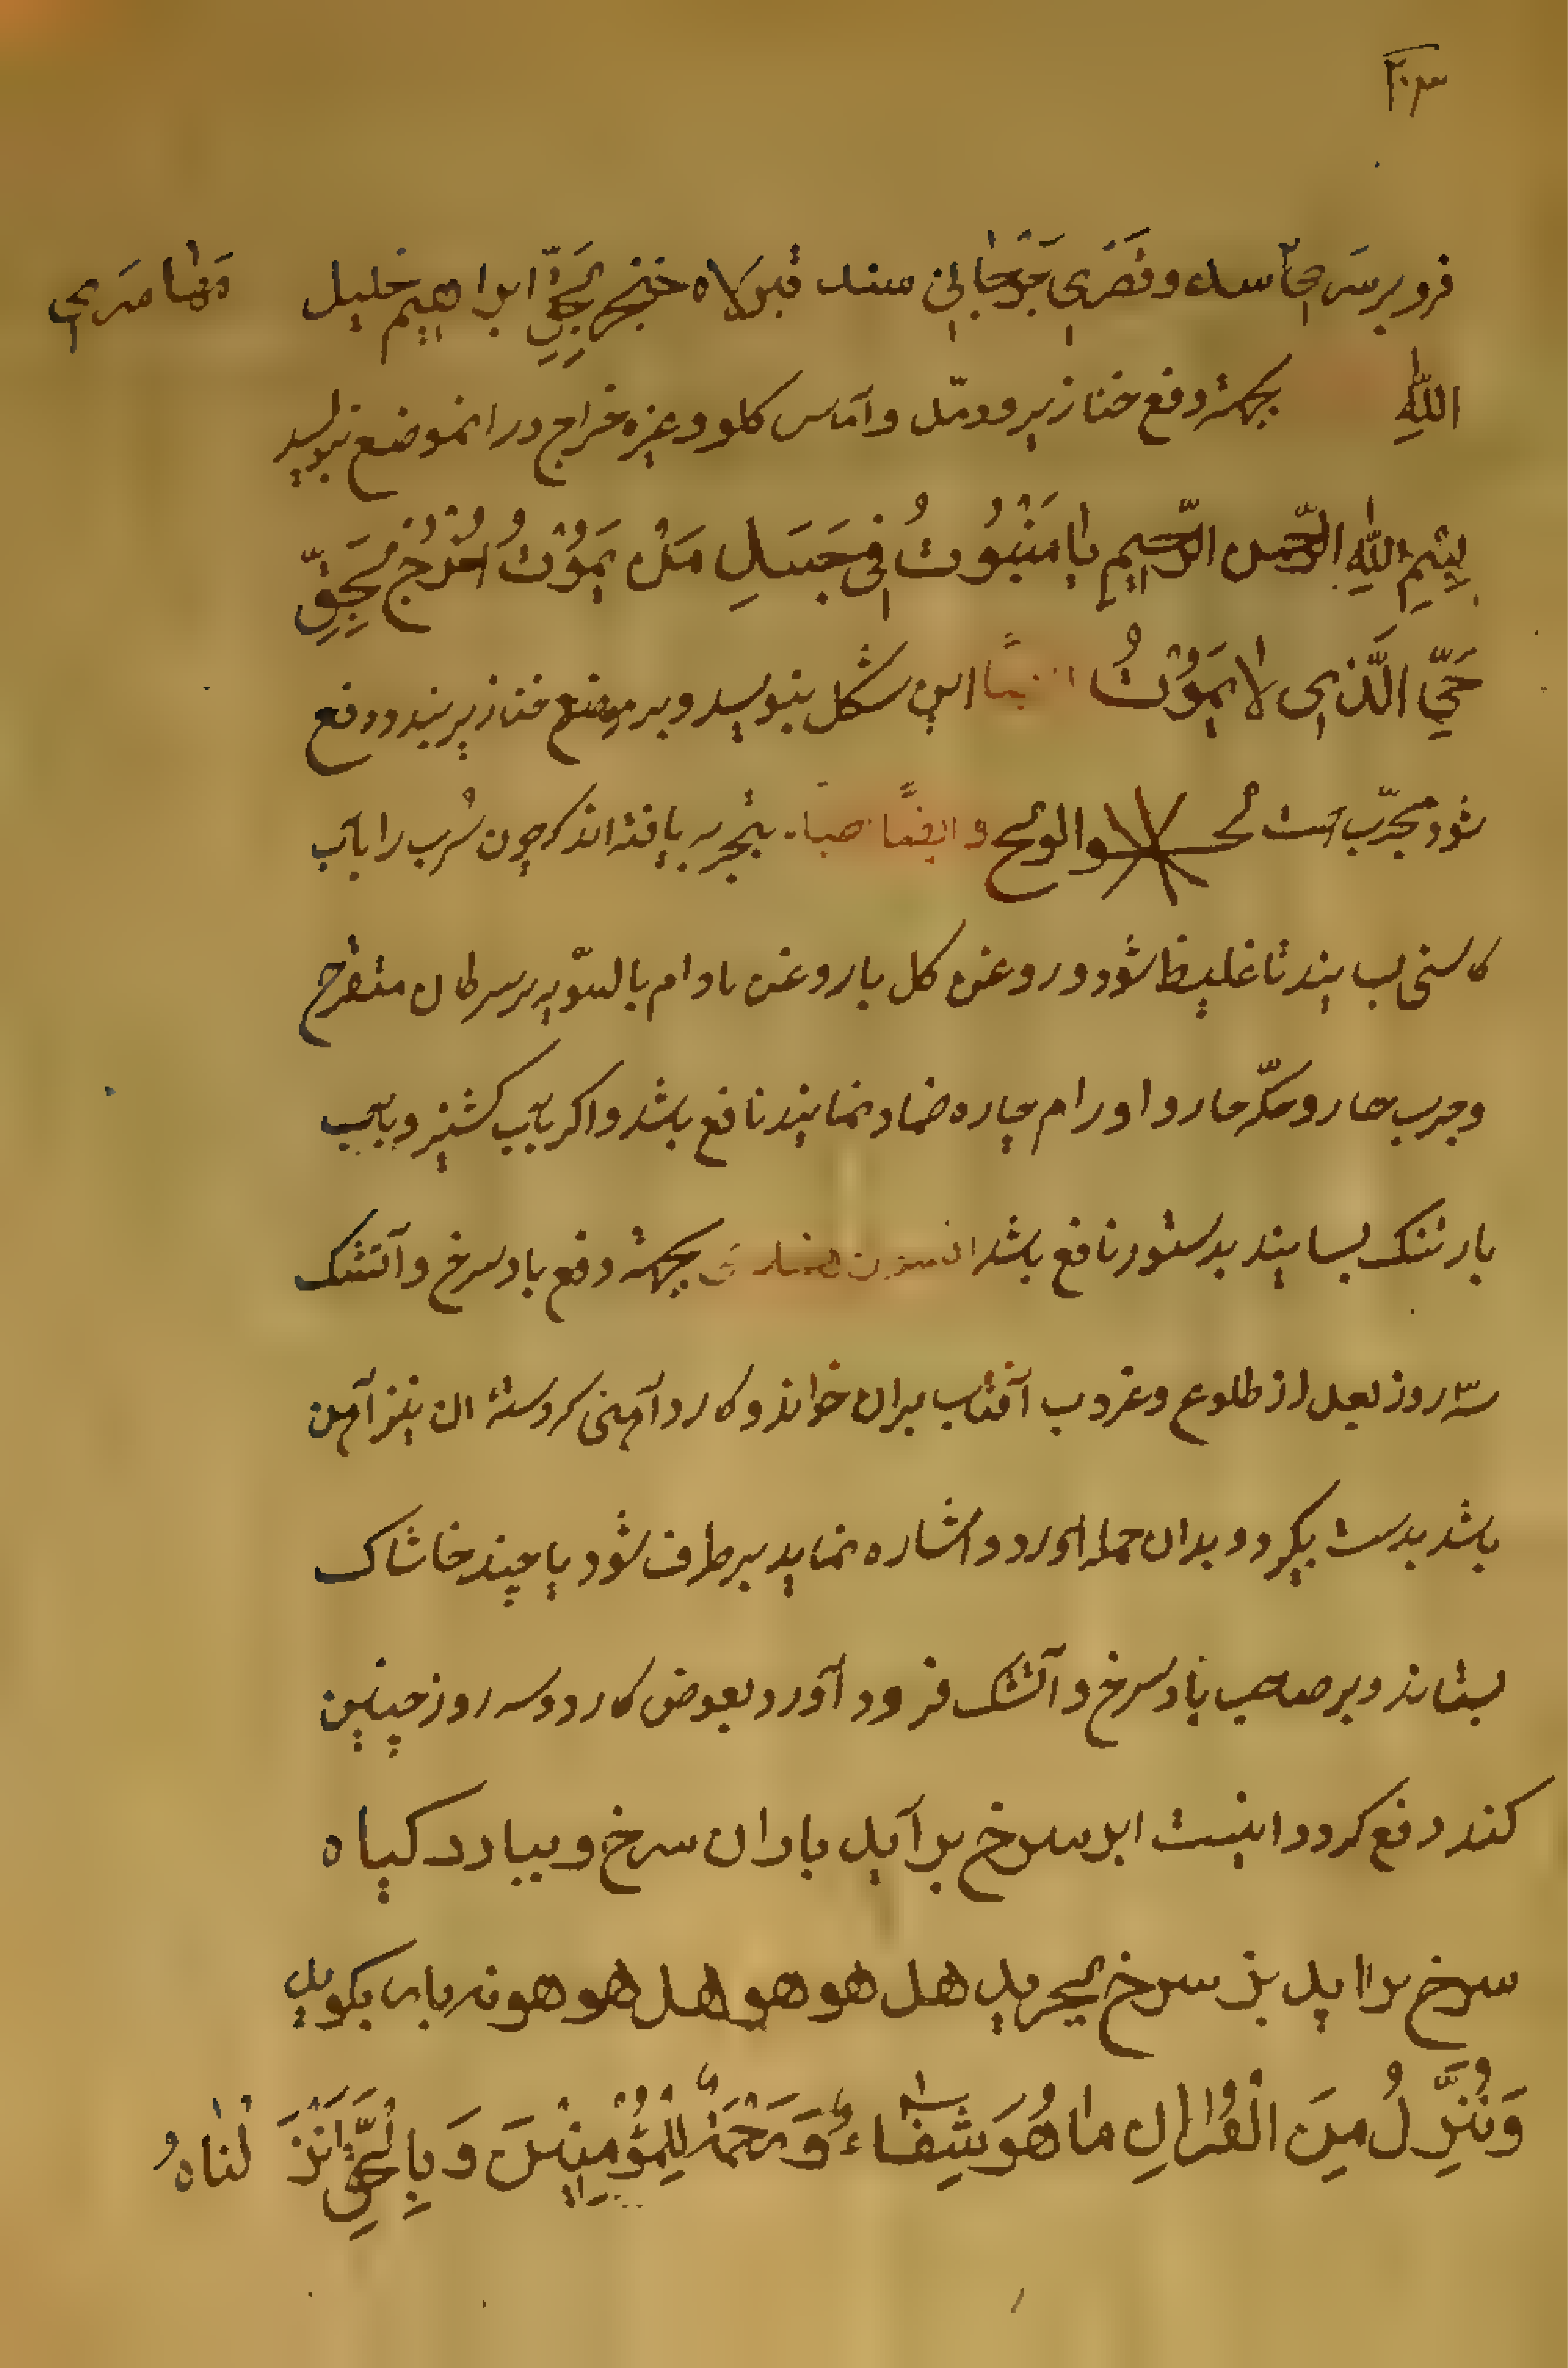 ۲۰۳
فرو بر سر حاسد و نصری جرجانی سند قبرکاه خنجر بحق ابراهیم خلیل
الله جهة دفع خنازیر و دمّل و آماس کلو و غیره خراج در انموضع بنویسد
بِسْمِ اللهِ الرَّحمن الرَّحیمِ یا مَنْبُوْتُ فِی جَسَدِ مَنْ یَمُوْتُ اُخْرُجْ بِحَقِّ
حَیِّ الَّذی لا یَمُوْتُ ایضًا این شکل بنویسد و بر موضع خنازیر بندد دفع
شود مجرّب است والوح و ایضًا بتجربه یافته اند که چون سُرب را بآب
کاسنی بسایند تا غلیظ شود و روغن کل یا روغن بادام بالسّویه بر سرطان متقرح
و جرب حار و حکّه حار و اورام حاره ضماد نمایند نافع باشد و اکر بآب کشنیز و بآب
بارتنک بسایند بدستور نافع باشد افسون جهة دفع باد سرخ و آتشک
سه روز بعد از طلوع و غروب آفتاب بران خواند و کارد آهنی که دسته ان نیز آهن
باشد بدست بکیرد و بدان حمله اورد و اشاره نماید برطرف شود یا چند خاشاک
بستاند و بر صاحب باد سرخ و آتشک فرود آورد بعوض کارد و سه روز چنین
کند دفع کردد اینست ابر سرخ برآید باران سرخ و ببارد کیاه
سرخ براید بز سرخ بچرید هل هو هو هل هو هو نه بار بکوید
وَنُنَزِّلُ مِنَ الْقُرْانِ ما هُوَ شِفاءٌ وَ رَحْمَةٌ لِلْمُؤْمِنِیْنَ وَ بِالْحَقِّ اَنْزَلْناهُ